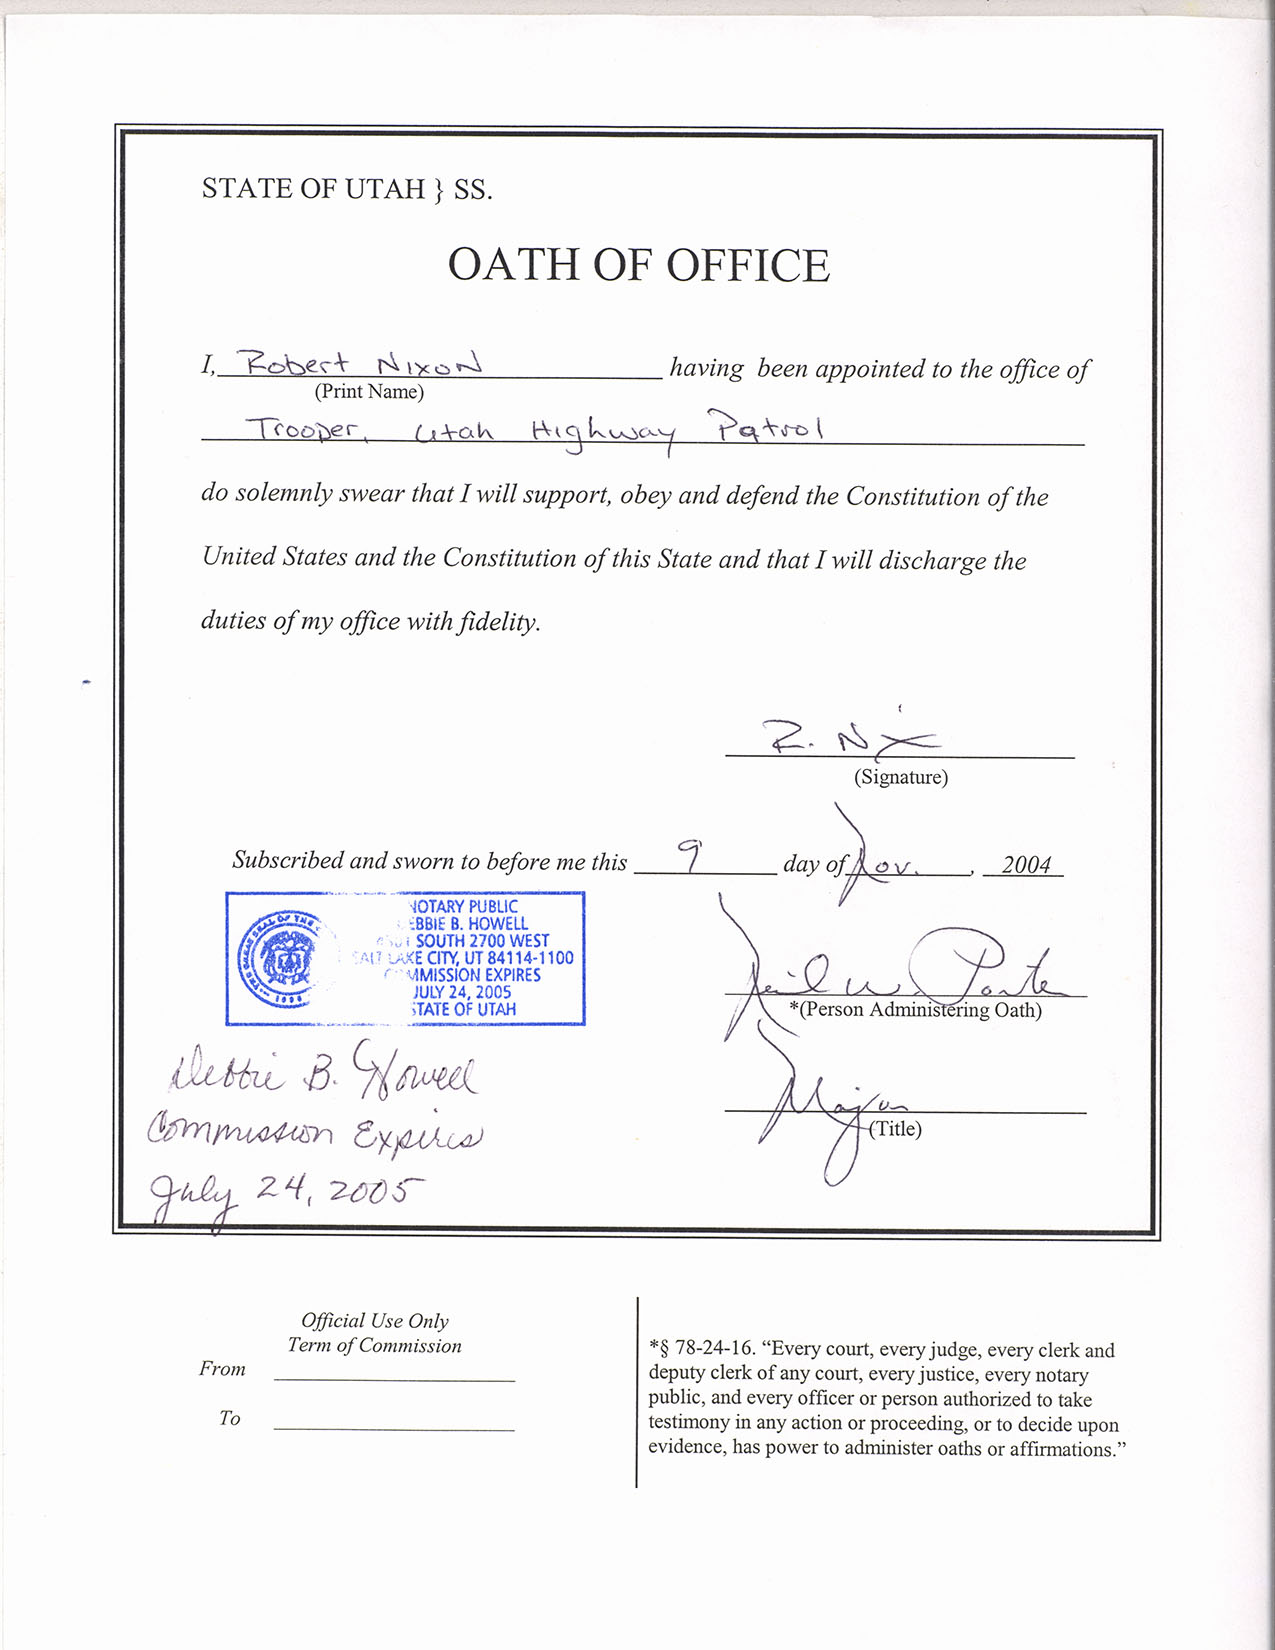 STATE OF UTAH } SS.
OATH OF OFFICE
I, Robert Nixon having been appointed to the office of
(Print Name)
Trooper, Utah Highway Patrol
do solemnly swear that I will support, obey and defend the Constitution of the
United States and the Constitution of this State and that I will discharge the
duties of my office with fidelity.
R. Nix
(Signature)
Subscribed and sworn to before me this 9 day of Nov. , 2004
NOTARY PUBLIC
DEBBIE B. HOWELL
SOUTH 2700 WEST
SALT LAKE CITY, UT 84114-1100
COMMISSION EXPIRES
JULY 24, 2005
STATE OF UTAH
Neil W Porter
*(Person Administering Oath)
Debbie B. Howell
Commission Expires
July 24, 2005
Major
(Title)
Official Use Only
Term of Commission
From
To
*§ 78-24-16. “Every court, every judge, every clerk and
deputy clerk of any court, every justice, every notary
public, and every officer or person authorized to take
testimony in any action or proceeding, or to decide upon
evidence, has power to administer oaths or affirmations.”